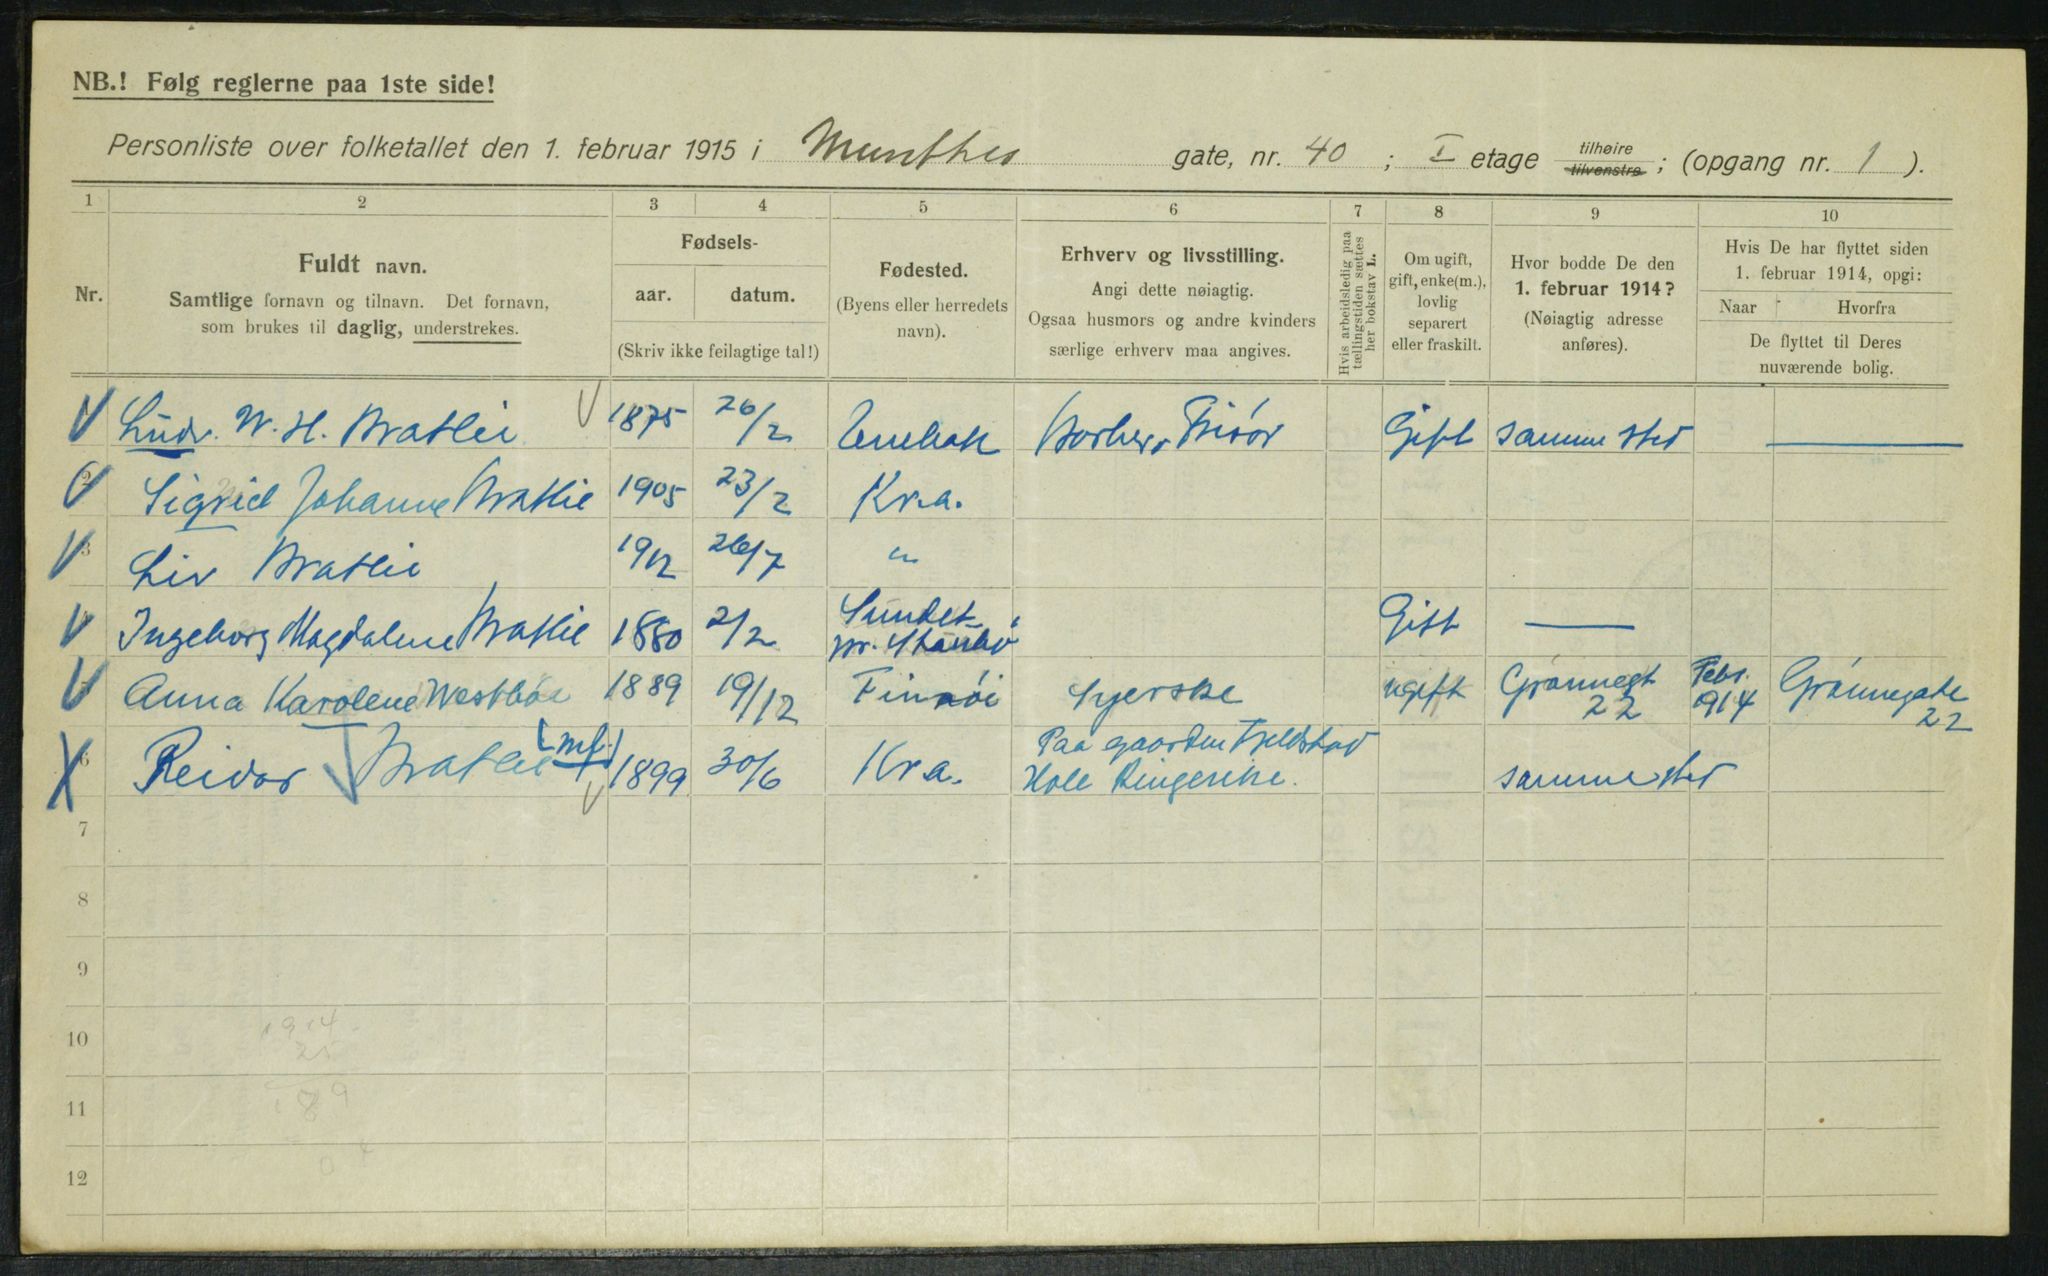 NB.! Følg reglerne paa 1ste side!
Personliste over folketallet den 1. februar 1915 i Munthes gate, nr. 40; I etage tilhøire tilvenstre; (opgang nr. 1).
1 2 3 4 5 6 7 8 9 10
Nr.
Fuldt navn.
Samtlige fornavn og tilnavn. Det fornavn,
som brukes til daglig, understrekes.
Fødsels-
aar. datum.
(Skriv ikke feilagtige tal!)
Fødested.
(Byens eller herredets
navn).
Erhverv og livsstilling.
Angi dette nøiagtig.
Ogsaa husmors og andre kvinders
særlige erhverv maa angives.
Hvis arbeidsledig paa
tællingstiden sættes
her bokstav L.
Om ugift,
gift, enke(m.),
lovlig
separert
eller fraskilt.
Hvor bodde De den
1. februar 1914?
(Nøiagtig adresse
anføres).
Hvis De har flyttet siden
1. februar 1914, opgi:
Naar Hvorfra
De flyttet til Deres
nuværende bolig.
Ludv. W. H. Bratlie 1875 26/2 Enebak Barber, Frisør Gift samme sted —
2 Sigrid Johanne Bratlie 1905 23/2 Kr.a.
3 Liv Bratlie 1912 26/7 "
Ingeborg Magdalene Bratlie 1880 2/2 Sundet pr. Gift —
Anna Karolene 1889 19/12 Finnöi Syerske ugift Grønnegt 22 Febr. 914 Grønnegate 22
6 Reidar Bratlie (mf.) 1899 30/6 Kr.a. Paa gaarden Fjeldstad
Hole Ringerike. samme sted
7
8
9
10
11
12
1914
25